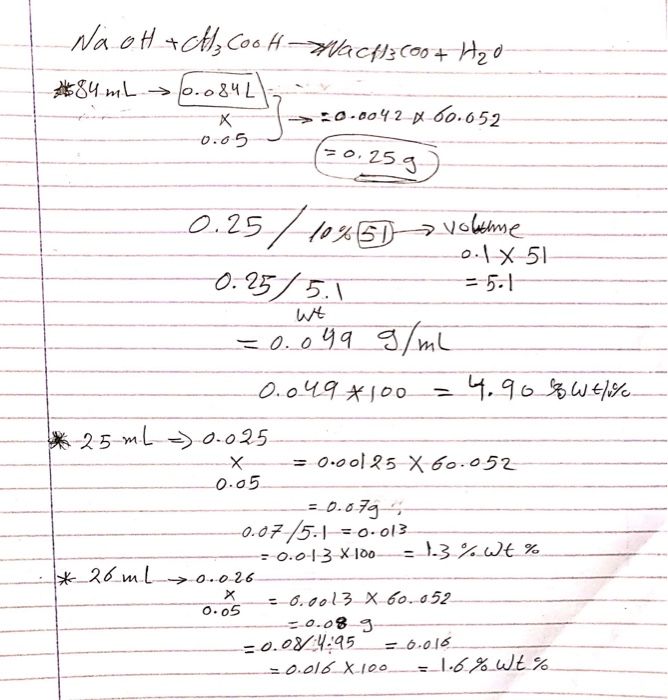 NaOH + CH3COOH → NaCH3COO + H2O
* 84 mL → 0.084L
x → = 0.0042 x 60.052
0.05
= 0.25 g
0.25 / 10% 51 → volume
0.1 X 51
0.25 / 5.1 = 5.1
wt
= 0.049 g/mL
0.049 * 100 = 4.90 % wt/%
* 25 mL ⇒ 0.025
x = 0.00125 X 60.052
0.05
= 0.07g
0.07/5.1 = 0.013
= 0.013 X 100 = 1.3 % wt %
* 26 mL → 0.026
x = 0.0013 X 60.052
0.05
= 0.08 g
= 0.08/4.95 = 0.016
= 0.016 X 100 = 1.6% wt %